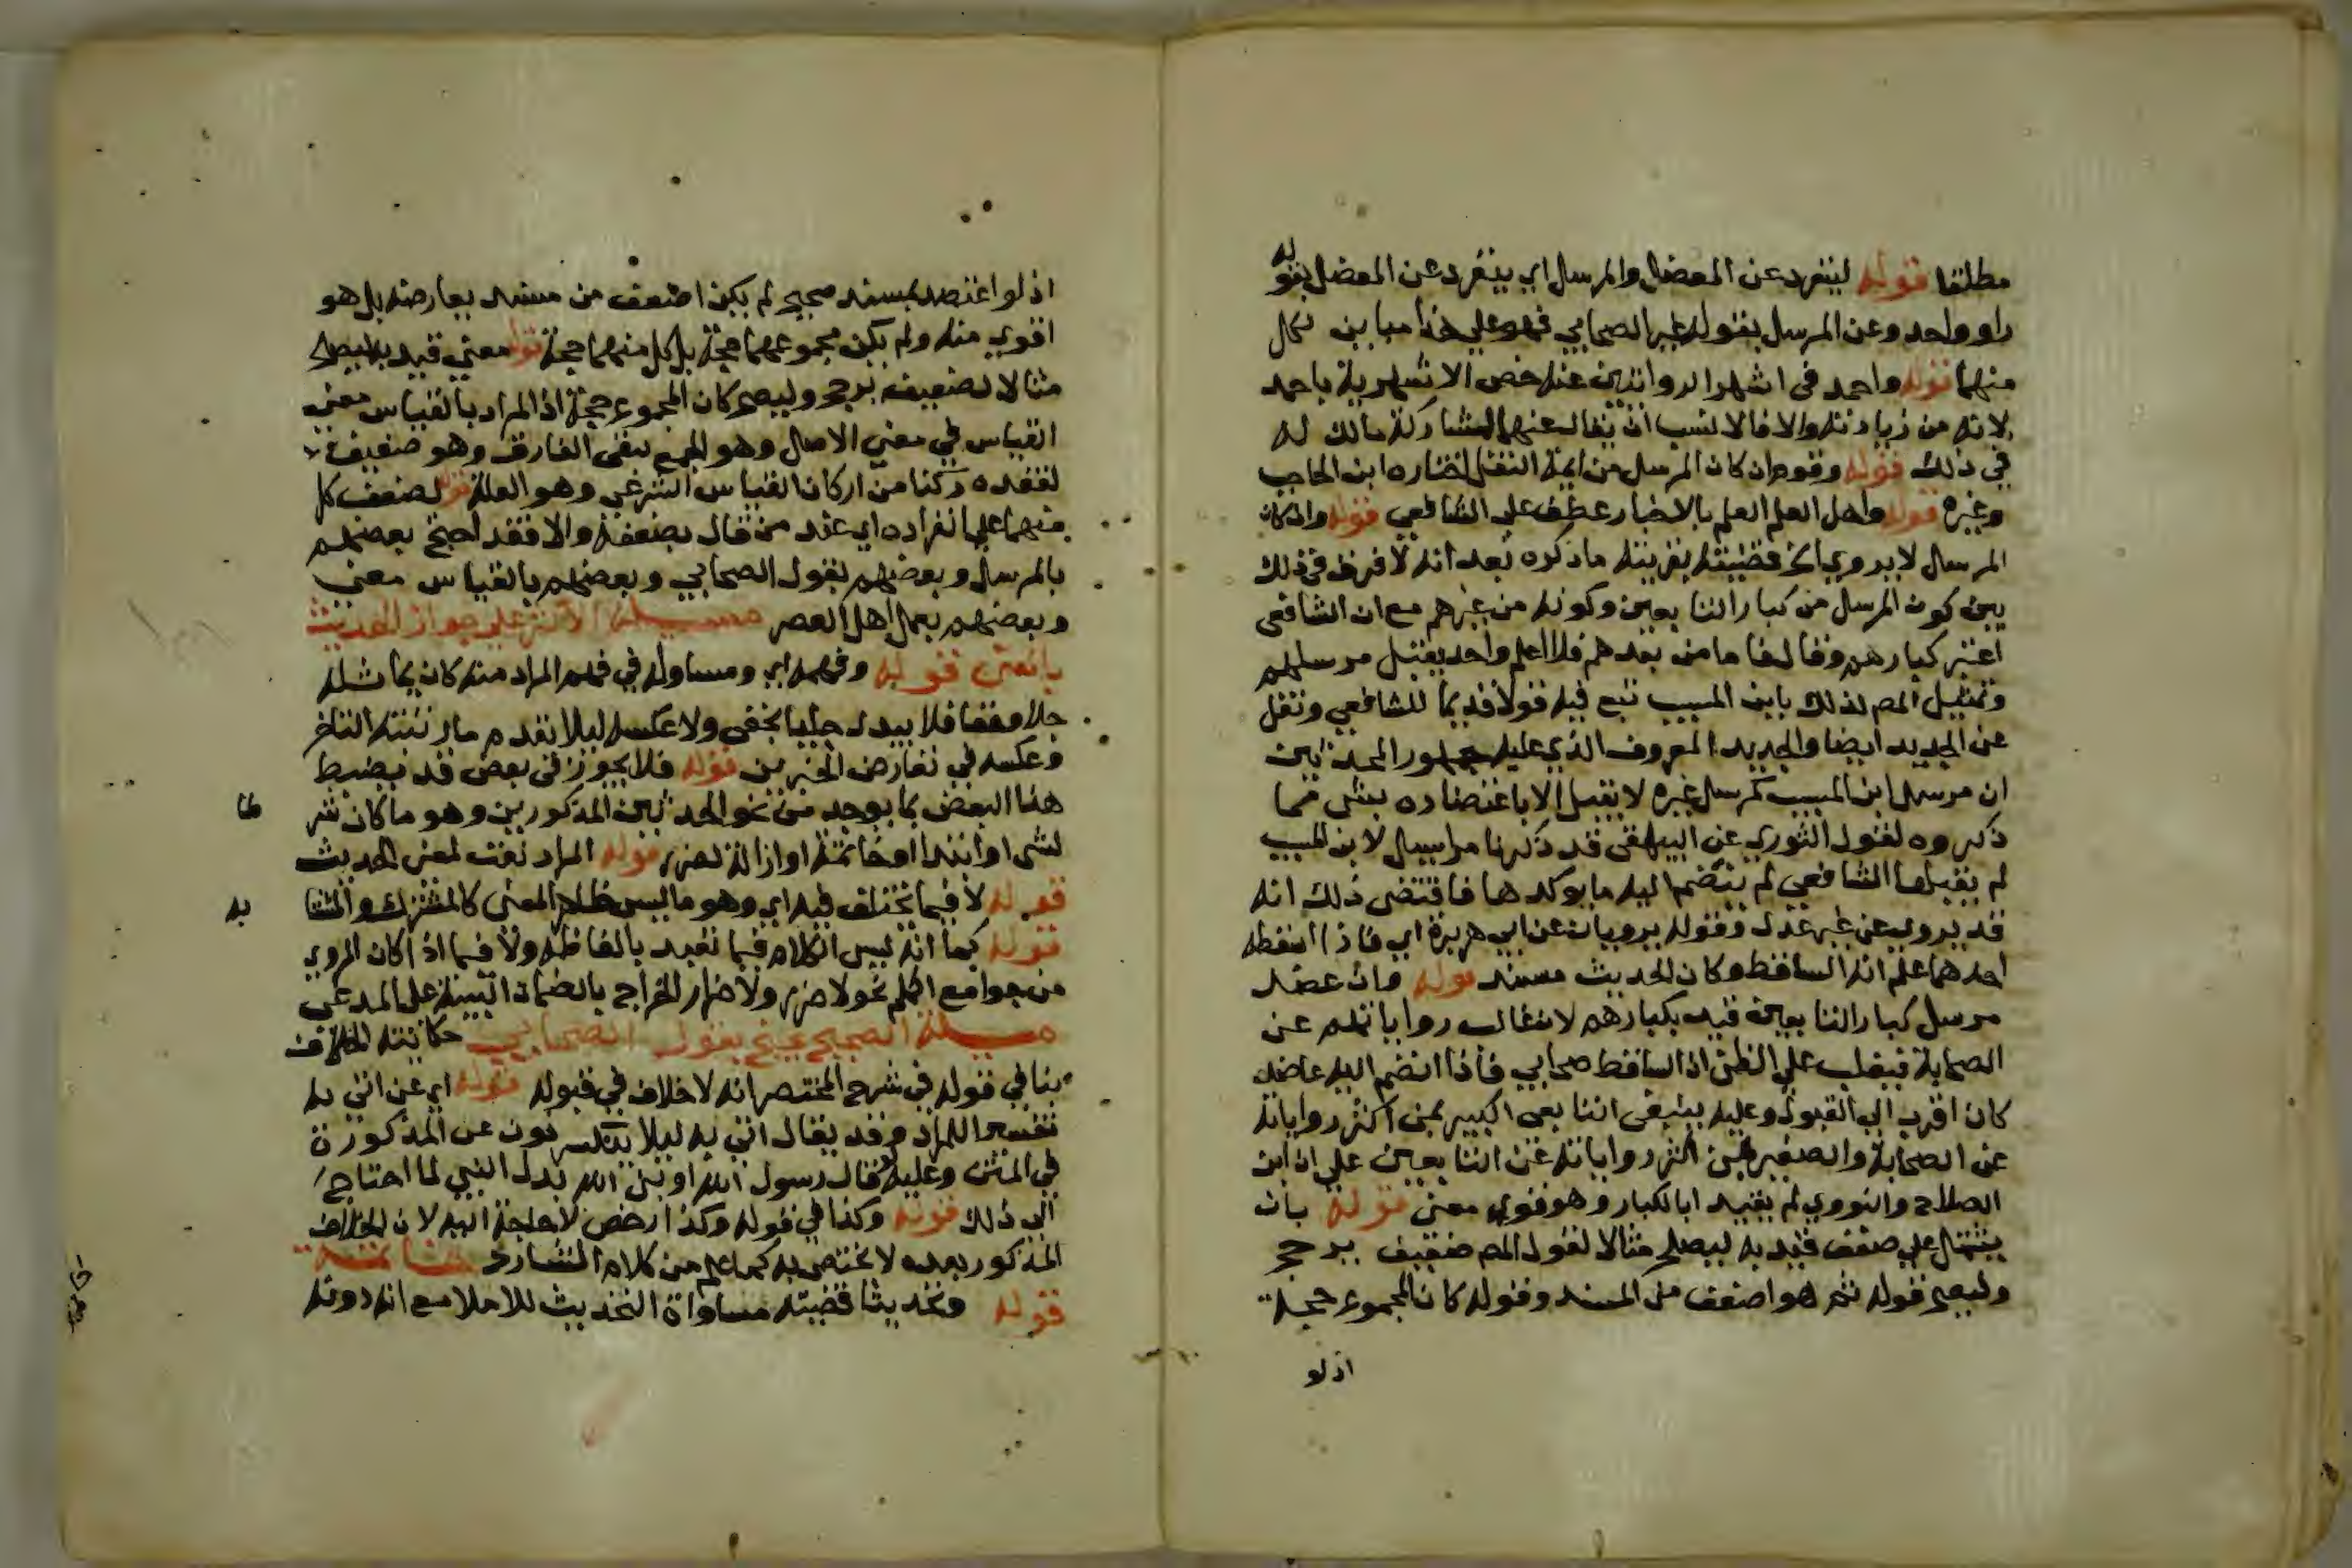 مطلقا قوله لينفرد عن المعضل والمرسل اي ينفرد عن المعضل بقوله
راو واحد وعن المرسل بقوله غير الصحابي فهو على هذا مباين لكل
منهما قوله واحمد في اشهر الروايتين عنه خص الاشهرية باحمد
لانه من زيادته والا فالانسب ان يقال عنهما لمشاركة مالك له
في ذلك قوله وقوم ان كان المرسل من ايمة النقل اختاره ابن الحاجب
وغيره قوله واهل العلم العلم بالاخبار عطف على الشافعي قوله وان كان
المرسل لا يروي الخ قضيته بقرينة ما ذكره بعد انه لا فرق في ذلك
بين كون المرسل من كبار التابعين وكونه من غيرهم مع ان الشافعي
اعتبر كبارهم وقال فاما من بعدهم فلا اعلم واحد يقبل مرسلهم
وتمثيل المص لذلك بابن المسيب تبع فيه قولا قديما للشافعي ونقل
عن الجديد ايضا والجديد المعروف الذي عليه جمهور المحدثين
ان مرسل ابن المسيب كمرسل غيره لا يقبل الا باعتضاده بشي مما
ذكروه لقول النوري عن البيهقي قد ذكرنا مراسيل لابن المسيب
لم يقبلها الشافعي لم ينضم اليه ما يوكدها فاقتضى ذلك انه
قد يروي عن غير عدل وقوله يرويان عن ابي هريرة اي فاذا اسقطه
احدهما علم انه الساقط وكان الحديث مسند قوله وان عضد
مرسل كبار التابعين قيد بكبارهم لان غالب رواياتهم عن
الصحابة فيغلب على الظن اذ الساقط صحابي فاذا انضم اليه عاضد
كان اقرب الى القبول وعليه ينبغي التابعي الكبير بمن اكثر رواياته
عن الصحابة والصغير بمن اكثر رواياته عن التابعين على ان ابن
الصلاح والنووي لم يقيد ابالكبار وهو قوي معنى قوله بان
يشتمل على ضعف قيد به ليصلح مثالا لقول المص ضعيف يرجح
وليصح قوله ثم هو اضعف من المسند وقوله كان المجموع حجة
اذ لو
اذ لو اعتضد بمسند صحيح لم يكن اضعف من مسند يعارضه بل هو
اقوي منه ولم يكن مجموعهما حجة بل كل منهما حجة قوله معنى قيد به ليصلح
مثالا لضعيف يرجح وليصح كان المجموع حجة اذ المراد بالقياس معنى
القياس في معنى الاصل وهو الجمع بنفي الفارق وهو ضعيف
لفقده ركنا من اركان القياس الشرعي وهو العلة قوله لضعف كل
منهما على انفراده اي عند من قال بضعفه والا فقد احتج بعضهم
بالمرسل وبعضهم بقول الصحابي وبعضهم بالقياس معنى
وبعضهم بعمل اهل العصر مسيلة الاكثر على جواز الحديث
بالمعنى قوله وفهمه اي ومساوله في فهم المراد منه كان يماثله
جلا وخفا فلا يبدل جليا بخفي ولا عكسه ليلا يقدم ما رتبته التاخر
وعكسه في تعارض الخبرين قوله فلا يجوز في بعض قد يضبط
هذا البعض بما يوجد من نحو الحدثين المذكورين وهو ما كان شرطا
لشي او ابتدا او خاتمة او ازالة لضرر قوله المراد نعت لمعنى الحديث
قوله لا فيما يختلف فيه اي وهو ما ليس ظاهر المعنى كالمشترك والمتشابه
قوله كما انه ليس الكلام فيما تعبد بالفاظه ولا فيما اذا كان المروي
من جوامع الكلم نحو لا ضرر ولا ضرار الخراج بالضمان البينة على المدعي
مسيلة الصحيح يحتج بقول الصحابي حكايته الخلاف
ينافي قوله في شرح المختصر انه لا خلاف في قبوله قوله اي عن النبي به
تفسير المراد وقد يقال اتى به ليلا يتكرر عن المذكورة
في المتن وعليه فقال رسول الله او نبي الله بدل النبي لما احتاج
الى ذلك قوله وكذا في قوله وكذا رخص لا حاجة اليه لان الخلاف
المذكور بعده لا يختص به كما علم من كلام الشارح خاتمة
قوله وتحديثا قضيته مساواة التحديث للاملا مع انه دونه